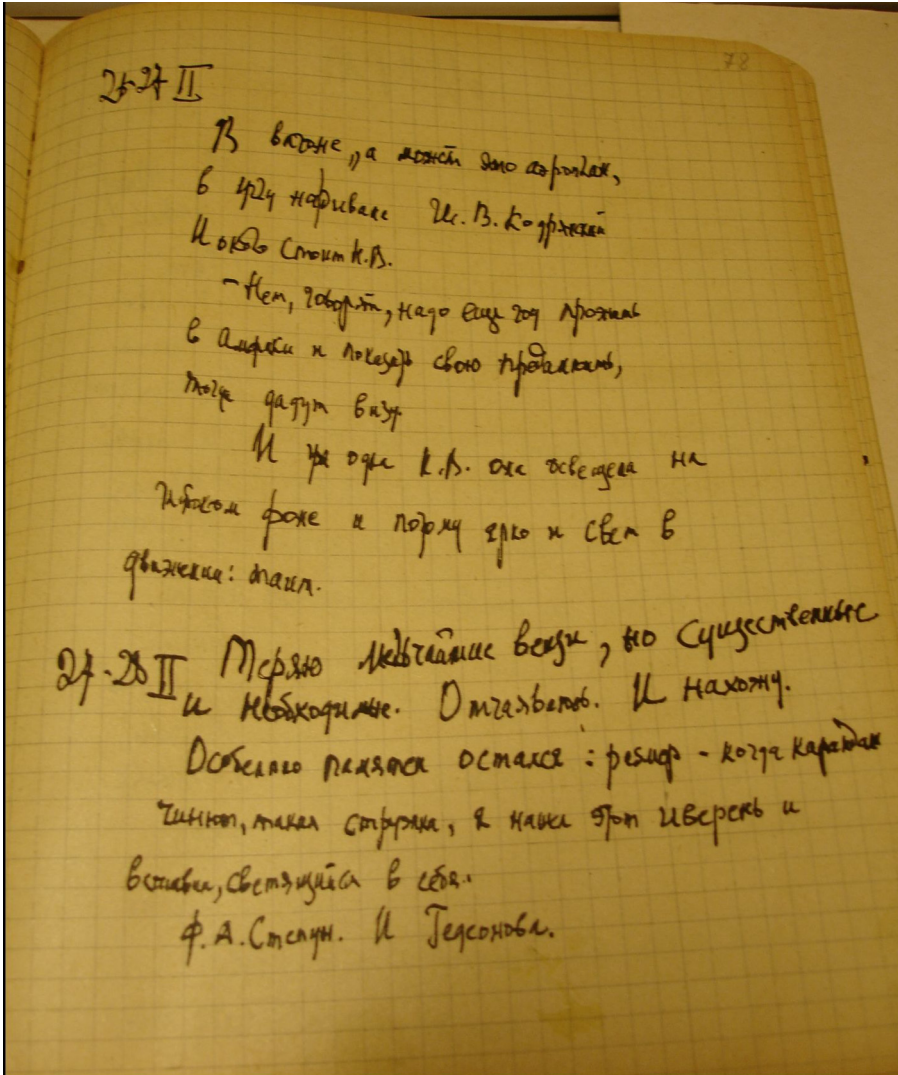 78
26-27 II
В вагоне, а может это аэроплан,
в углу на диване И. В. Кодрянский
И около стоит Н.В.
- Нет, говорят, надо еще год прожить
в Америки и показать свою
тогда дадут визу.
И уже одна Н.В. она освещена на
фоне и потому ярко и свет в
движении: таит.
27-28 II Теряю мельчайшие вещи, но существенные
и необходимые. Отчаиваюсь. И нахожу.
Особенно памятен остался: - когда карандаш
чинют, такая стружка, я нашел этот иверень и
вставил, светящийся в себя.
Ф. А. Степун. И Гедсонова.